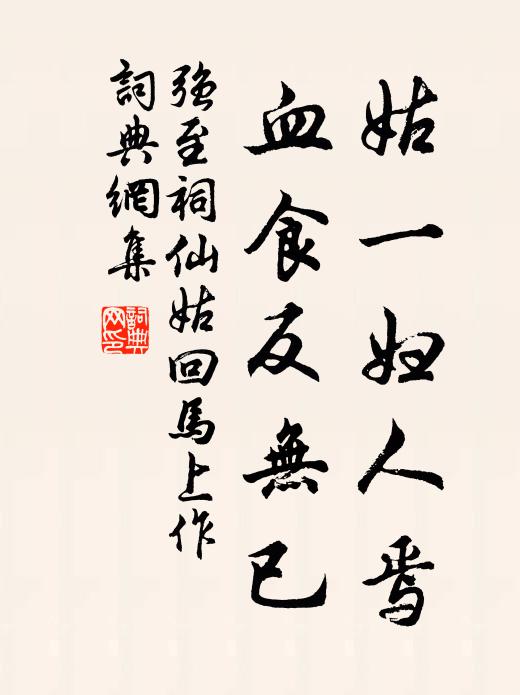 姑一妇人焉
血食反無已
强至祠仙姑回馬上作
詞典網集
詞典网印